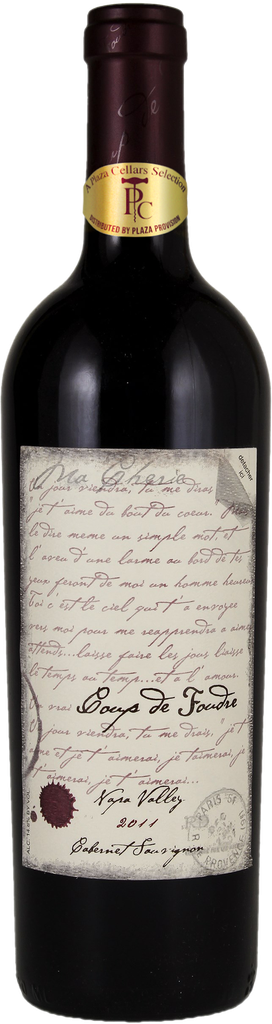 A Plaza Cellars Selection
PC
DISTRIBUTED BY PLAZA PROVISION
détacher
ici
Ma Cherie
Un jour viendra, tu me diras
"je t'aime du bout du coeur.
le dire meme un simple mot, et
l'aveu d'une larme au bord de tes
yeux feront de moi un homme heureux
Toi c'est le ciel qui t'a envoyee
vers moi pour me reapprendre a aimer
attends...laisse faire les jours laisse
le temps au temps...et a l'amour.
Un vrai Coup de Foudre
Un jour viendra, tu me dirais, "je t'
aime et je t'aimerai, je t'aimerai, je
t'aimerai, je t'aimerai...
Napa Valley
2011
Cabernet Sauvignon
PARIS 54
PROVENCE